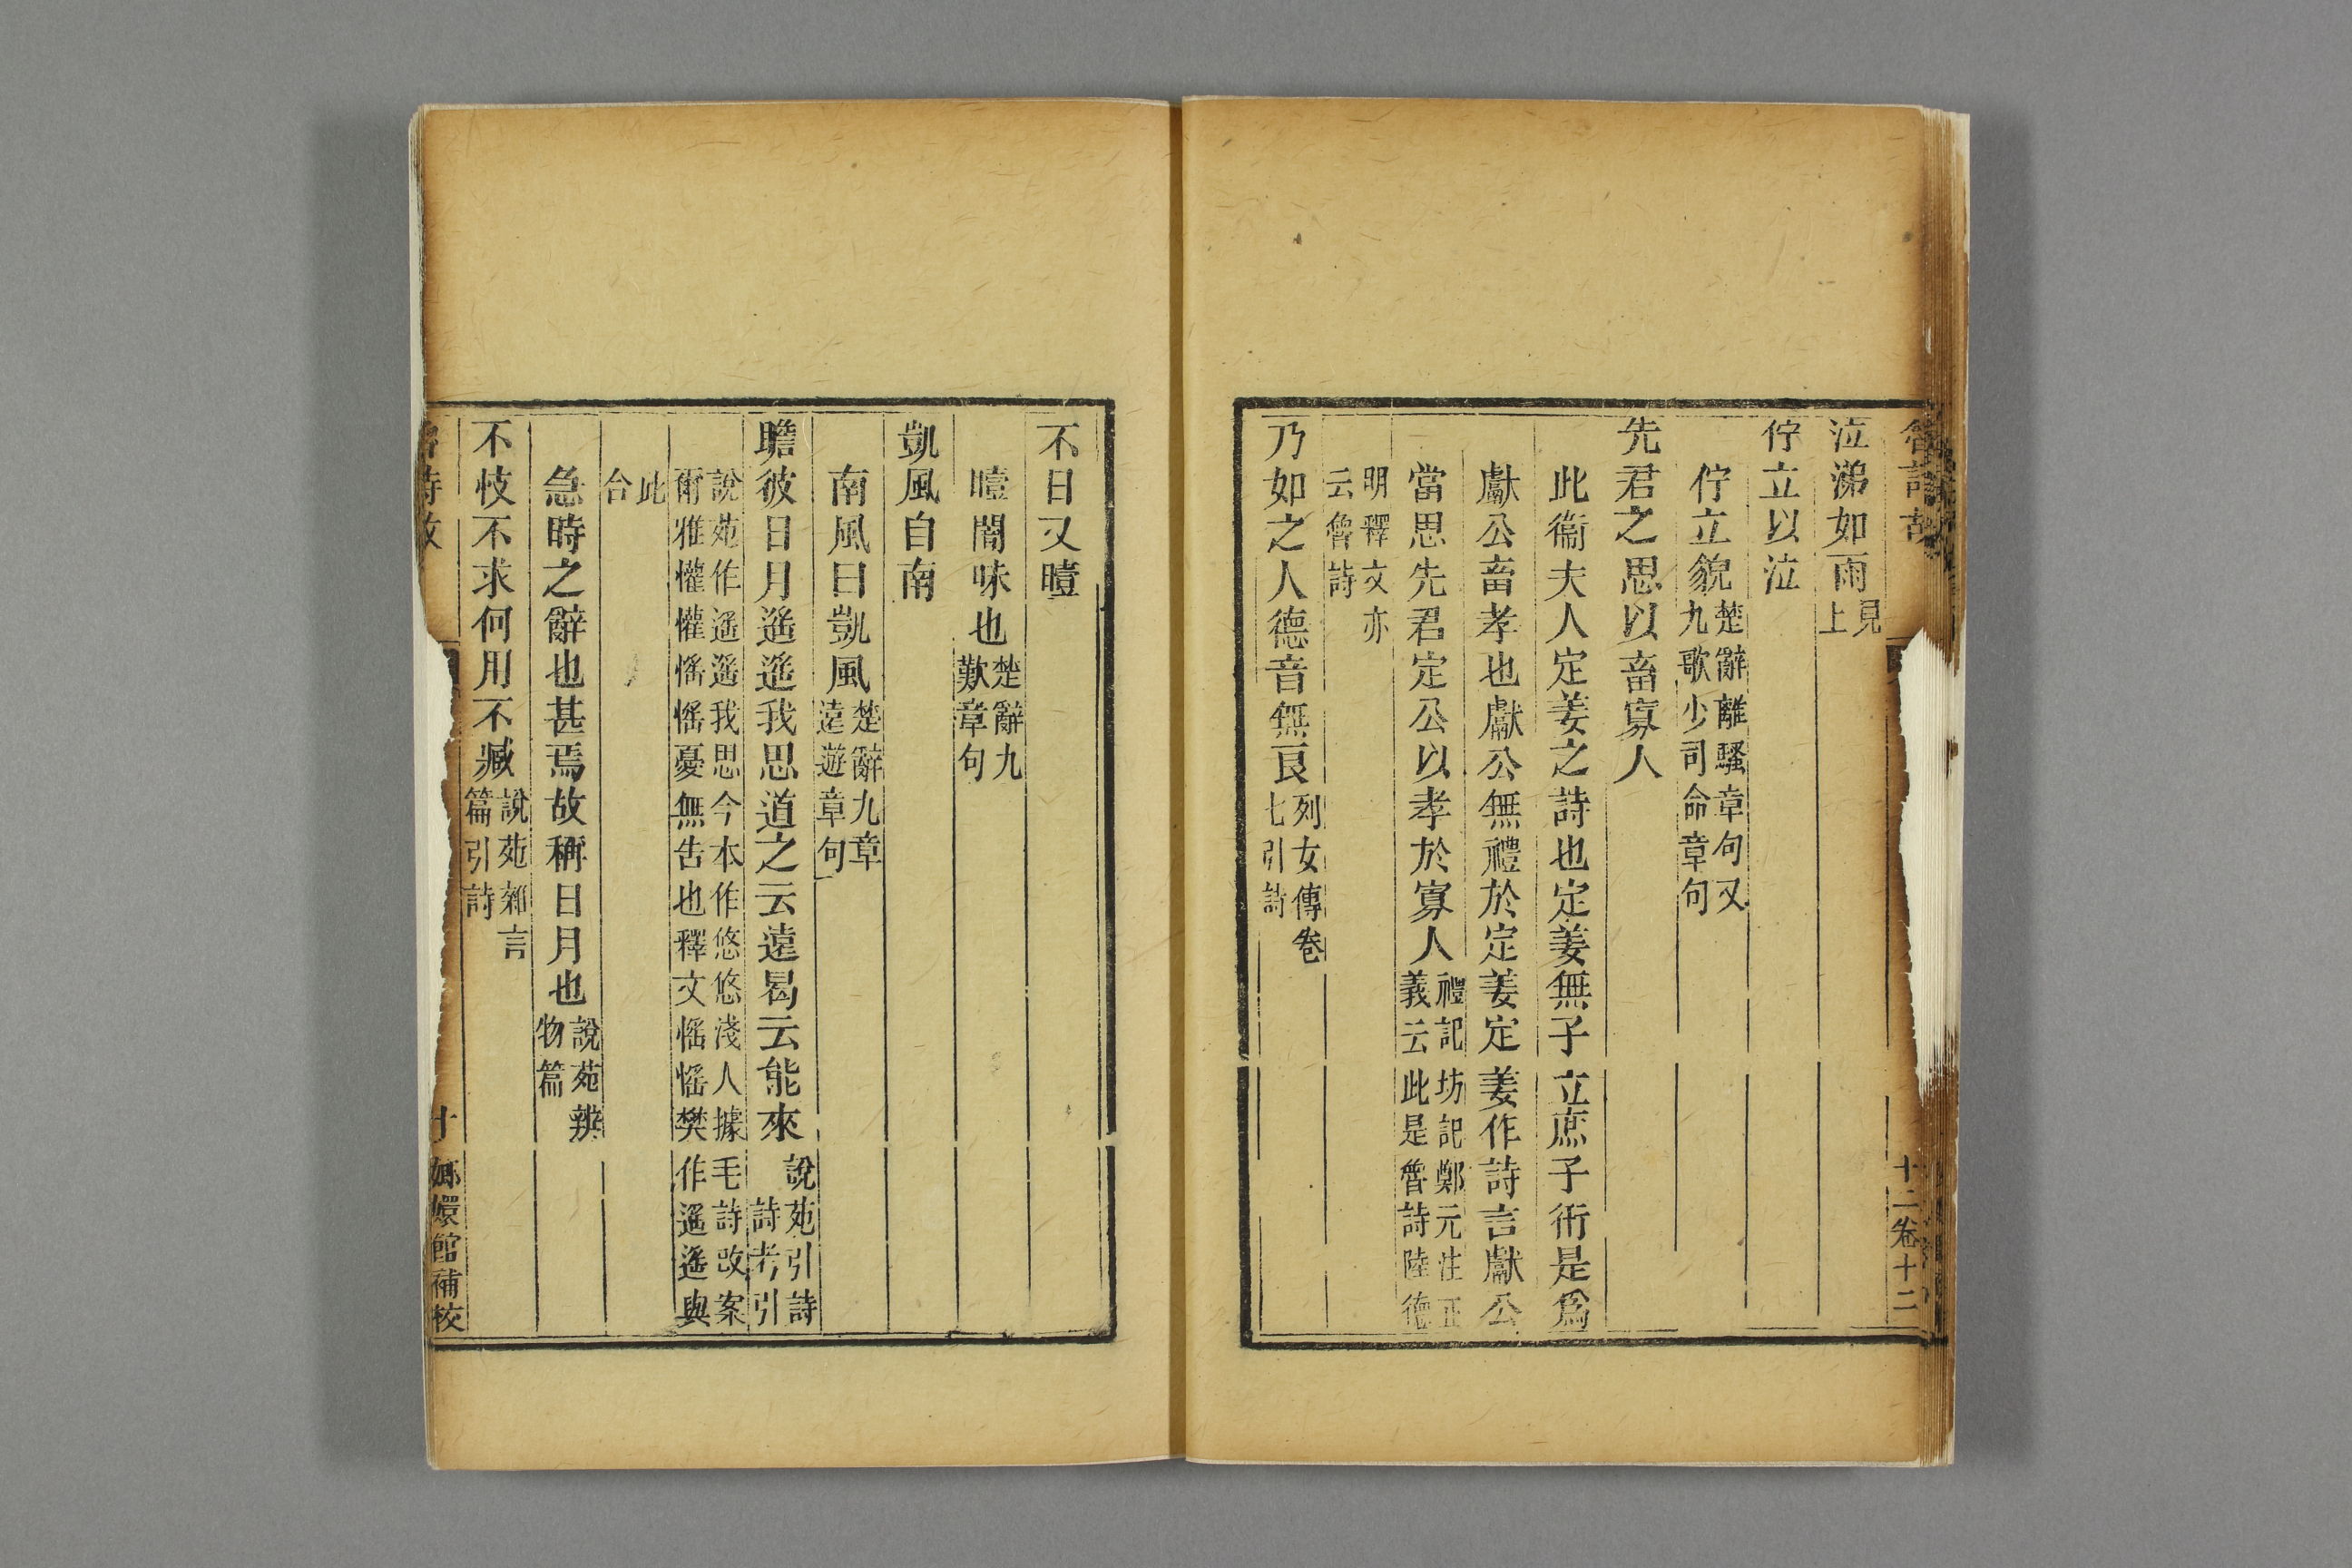 魯詩故
十二卷十二
泣涕如雨見上
佇立以泣
佇立貌楚辭離騷章句又九歌少司命章句
先君之思以畜寡人
此衞夫人定姜之詩也定姜無子立庶子衎是爲
獻公畜孝也獻公無禮於定姜定姜作詩言獻公
當思先君定公以孝於寡人禮記坊記鄭元注正義云此是魯詩陸德
明釋文亦云魯詩
乃如之人德音無良列女傳卷七引詩
不日又曀
曀闇昧也楚辭九歎章句
凱風自南
南風曰凱風楚辭九章遠遊章句
瞻彼日月遙遙我思道之云遠曷云能來說苑引詩詩考引
說苑作遙遙我思今本作悠悠淺人據毛詩改案爾雅懽懽愮愮憂無告也釋文愮愮樊作遙遙與
此合
急時之辭也甚焉故稱日月也說苑辨物篇
不忮不求何用不臧說苑雜言篇引詩
魯詩故
十
嫏嬛館補校